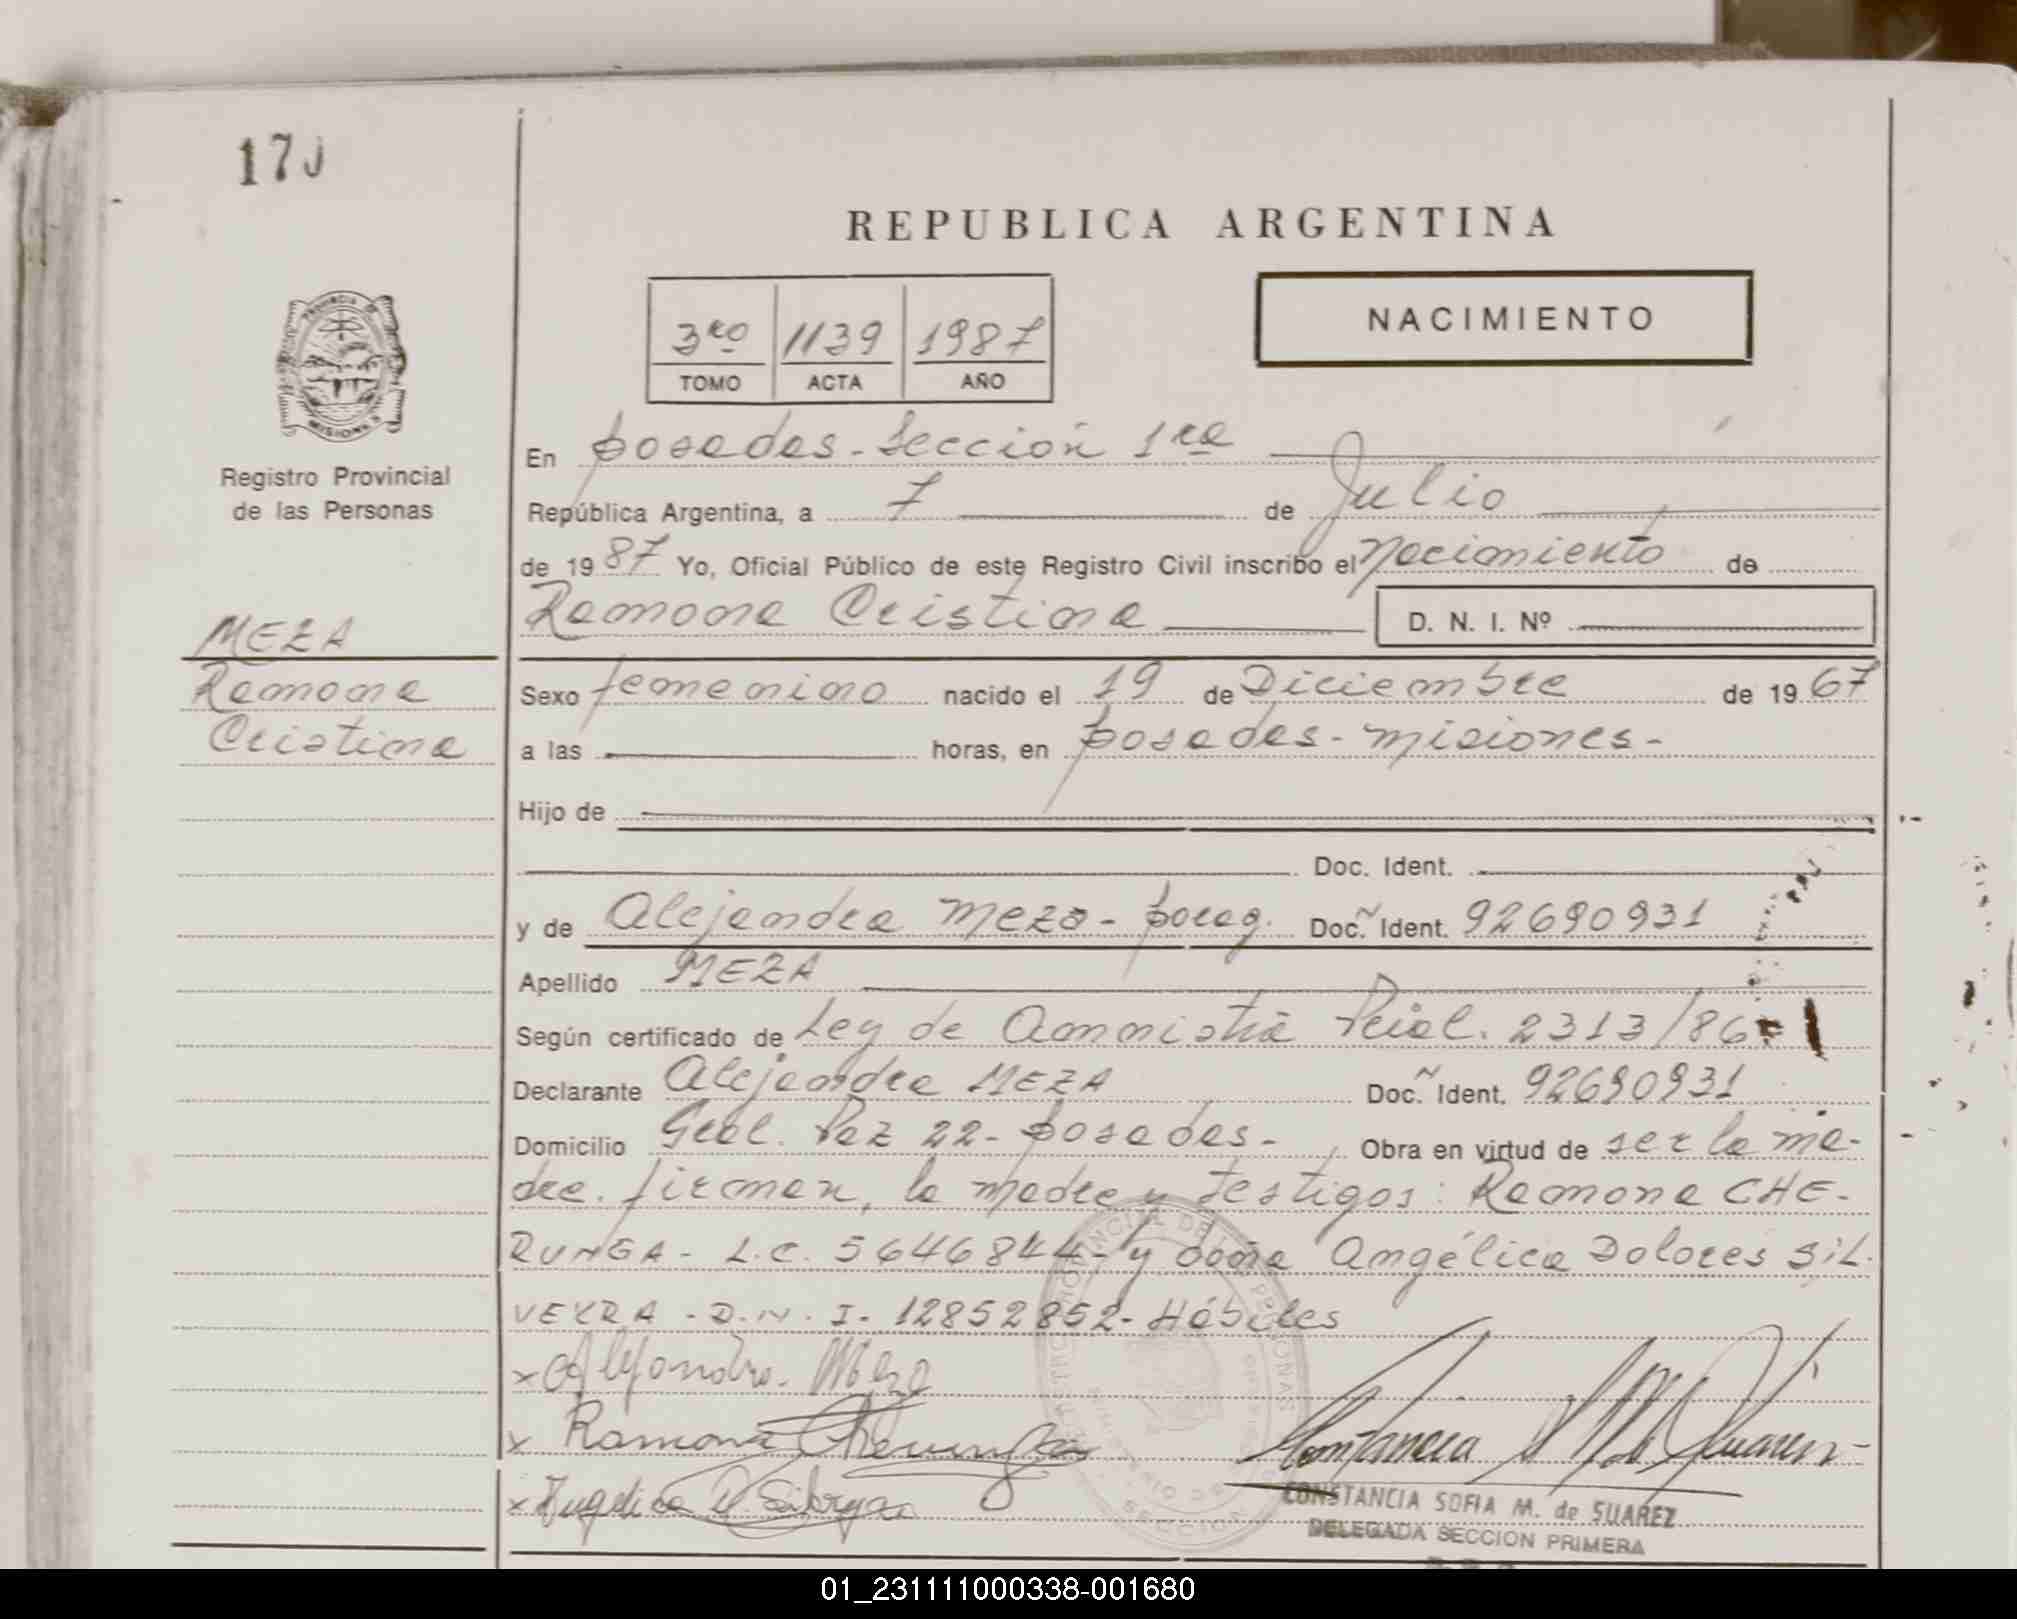 170
REPUBLICA ARGENTINA
NACIMIENTO
3ro 1139 1987
TOMO ACTA AÑO
PROVINCIA DE MISIONES
Registro Provincial
de las Personas
MEZA
Ramona
Cristina
En Posadas - Sección 1ra
República Argentina, a 7 de Julio
de 1987 Yo, Oficial Público de este Registro Civil inscribo el Nacimiento de
Ramona Cristina D. N. I. Nº
Sexo femenino nacido el 19 de Diciembre de 1967
a las horas, en Posadas - Misiones -
Hijo de
Doc. Ident.
y de Alejandra Meza - parag. Doc. Ident. 92690931
Apellido MEZA
Según certificado de Ley de Amnistía Pcial. 2313/86
Declarante Alejandra MEZA Doc. Ident. 92690931
Domicilio Gral. Paz 22 - Posadas - Obra en virtud de ser la ma-
dre. firman, la madre y testigos: Ramona CHE-
RUNGA - L.C. 5646844 - y doña Angélica Dolores SIL
VEYRA - D.N.I. 12852852 - Hábiles
x Alejandra Meza
x Ramona Cherunga
x Angelica D. Silveyra
Constancia S M de Suarez
CONSTANCIA SOFIA M. de SUAREZ
DELEGADA SECCION PRIMERA
01_231111000338-001680